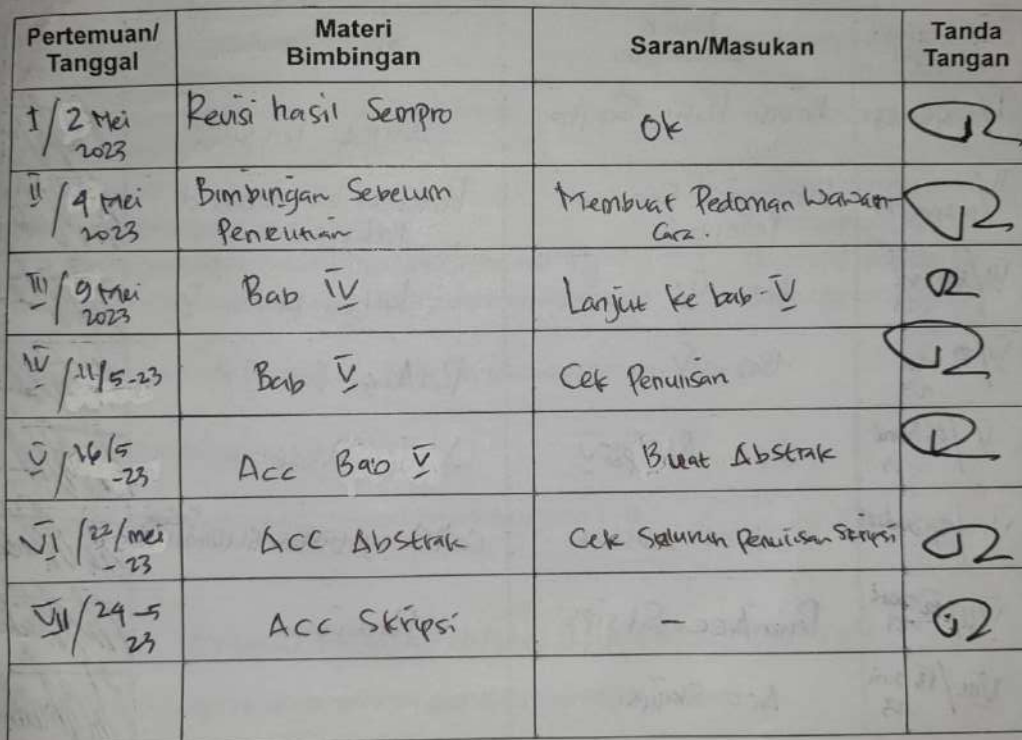 Pertemuan/
Tanggal
Materi
Bimbingan
Saran/Masukan
Tanda
Tangan
I/2 Mei
2023
Revisi hasil Sempro
Ok
II/4 Mei
2023
Bimbingan Sebelum
Penelitian
Membuat Pedoman Wawan-
cara.
III/9 Mei
2023
Bab IV
Lanjut ke bab-V
IV/11/5-23
Bab V
Cek Penulisan
V/16/5
-23
Acc Bab V
Buat Abstrak
VI/22/mei
- 23
Acc Abstrak
Cek Seluruh Penulisan Skripsi
VII/24-5
23
Acc Skripsi
-